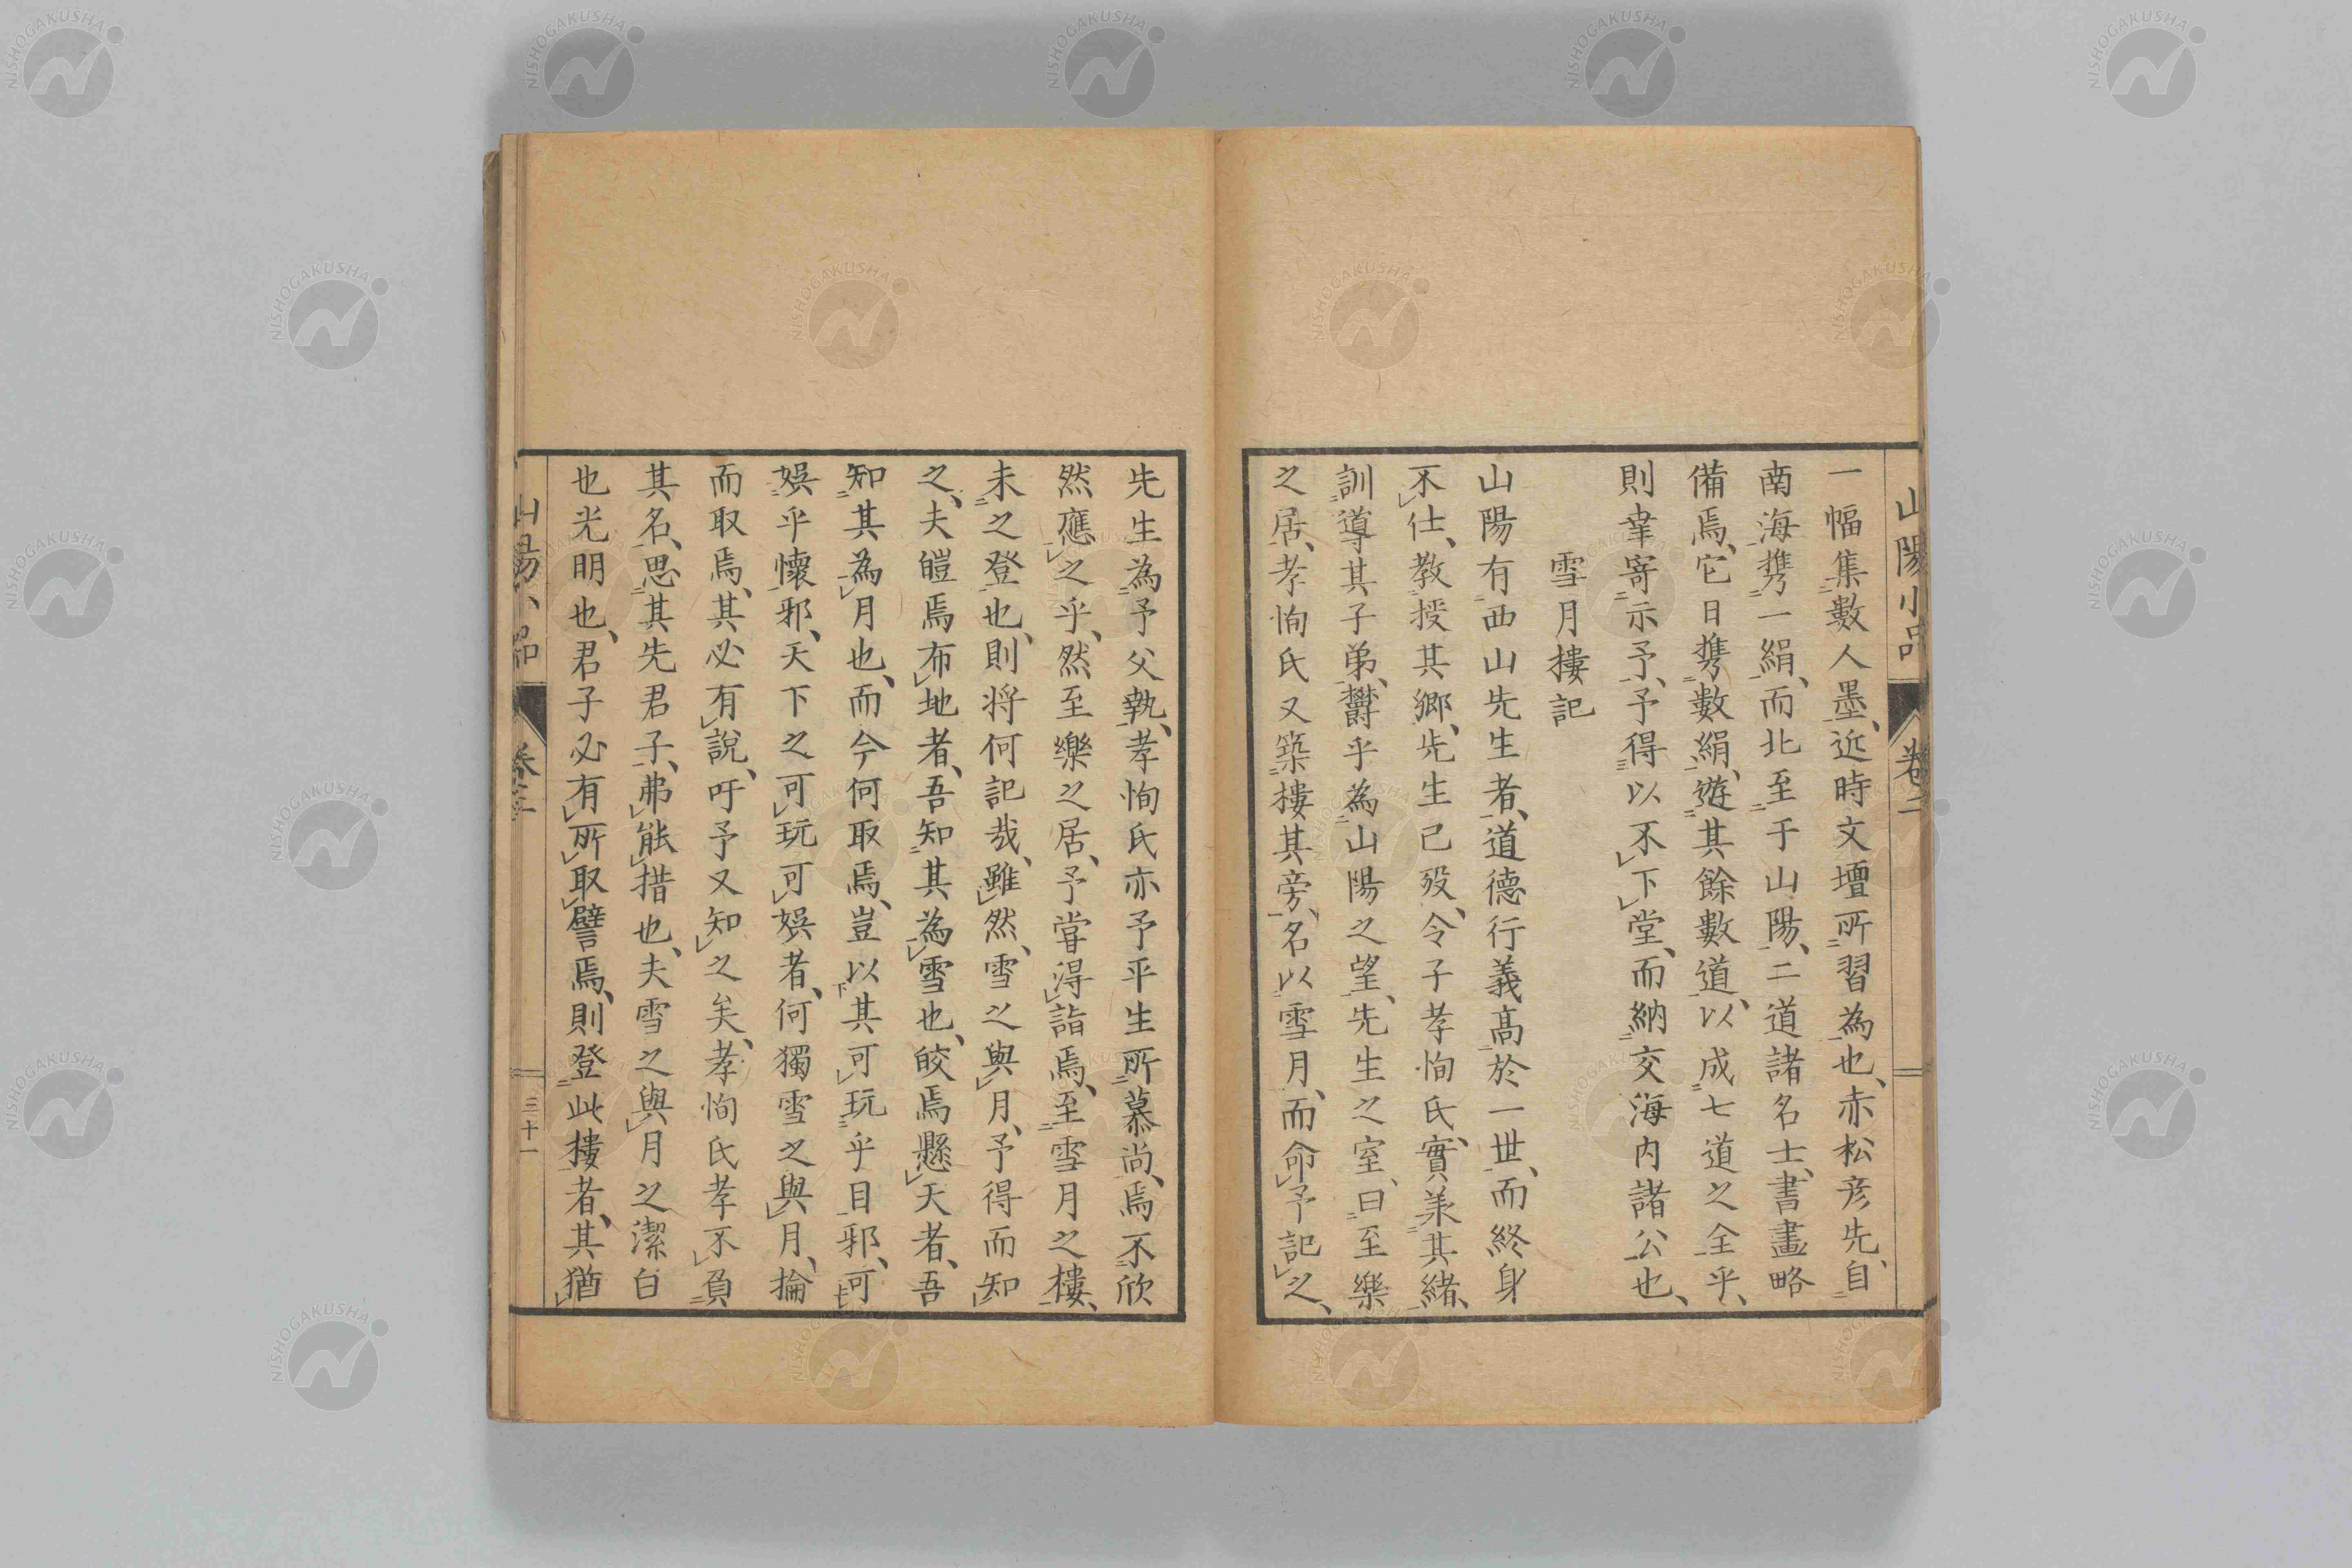 山陽小品 卷二
一幅集數人墨、近時文壇所習為也、赤松彥先、自
南海携一絹、而北至于山陽、二道諸名士、書畫略
備焉、它日携數絹、遊其餘數道、以成七道之全乎、
則幸寄示予、予得以不下堂、而納交海内諸公也、
雪月樓記
山陽有西山先生者、道德行義高於一世、而終身
不仕、教授其鄉、先生已歿、令子孝恂氏、實美其緒、
訓導其子弟、欝乎為山陽之望、先生之室、曰至樂
之居、孝恂氏又築樓其旁、名以雪月、而命予記之、
先生為予父執、孝恂氏亦予平生所慕尚、焉不欣
然應之乎、然至樂之居、予嘗得詣焉、至雪月之樓、
未之登也、則将何記哉、雖然、雪之與月、予得而知
之、夫皚焉布地者、吾知其為雪也、皎焉懸天者、吾
知其為月也、而今何取焉、豈以其可玩乎目邪、可
娛乎懷邪、天下之可玩可娛者、何獨雪之與月、掄
而取焉、其必有說、吁予又知之矣、孝恂氏孝不負
其名、思其先君子、弗能措也、夫雪之與月之潔白
也光明也、君子必有所取譬焉、則登此樓者、其猶
山陽小品 卷二 三十一
NISHOGAKUSHA